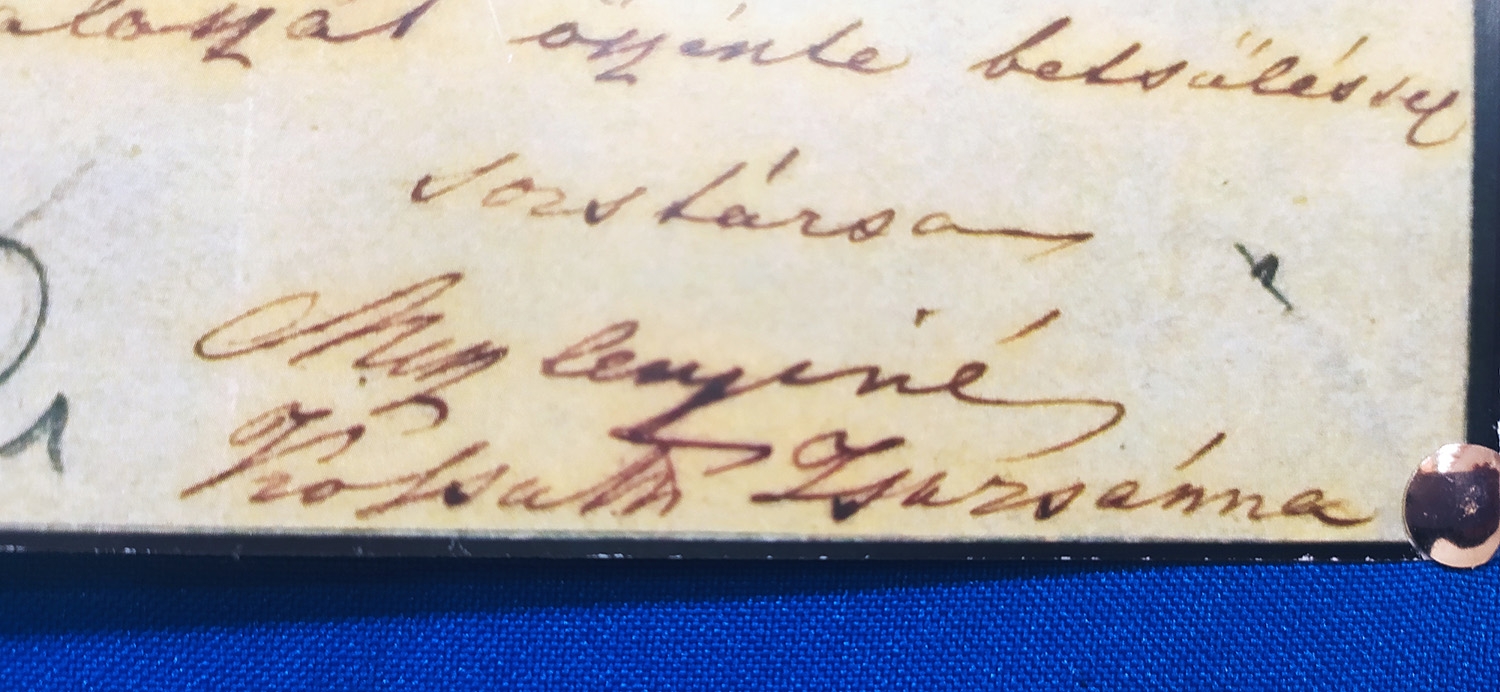 őszinte betsüléssel
sorstársa
Meszlenyiné
Kossuth Zsuzsánna